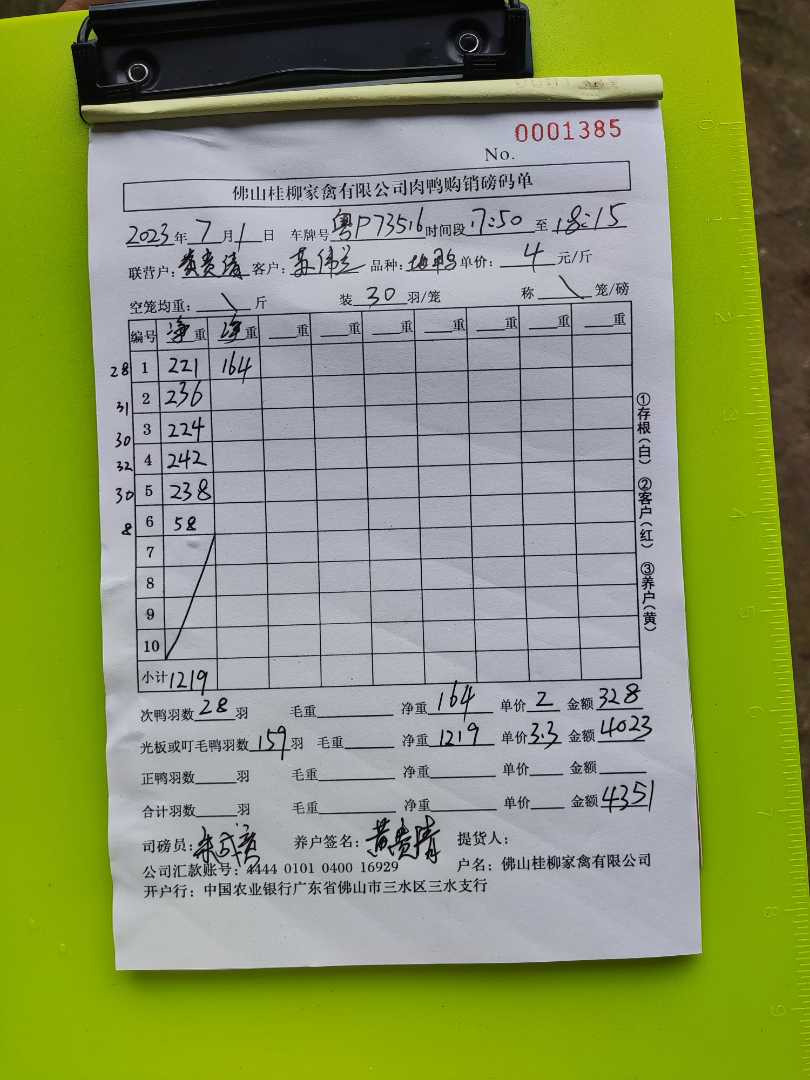 0001385
No.
佛山桂柳家禽有限公司肉鸭购销磅码单
2023年7月1日 车牌号粤P73516时间段17:50至18:15
联营户:黄贵清客户:苏伟兰 品种: 单价:4元/斤
空笼均重:\斤 装30羽/笼 称\笼/磅
编号 净重 净重 重 重 重 重 重 重 重
28 1 221 164
31 2 236
30 3 224
32 4 242
30 5 238
8 6 58
7
8
9
10
小计 1219
①存根(白) ②客户(红) ③养户(黄)
次鸭羽数28羽 毛重 净重164 单价2 金额328
光板或叮毛鸭羽数159羽 毛重 净重1219 单价3.3 金额4023
正鸭羽数 羽 毛重 净重 单价 金额
合计羽数 羽 毛重 净重 单价 金额4351
司磅员: 养户签名:黄贵清 提货人:
公司汇款账号:4444 0101 0400 16929 户名:佛山桂柳家禽有限公司
开户行:中国农业银行广东省佛山市三水区三水支行